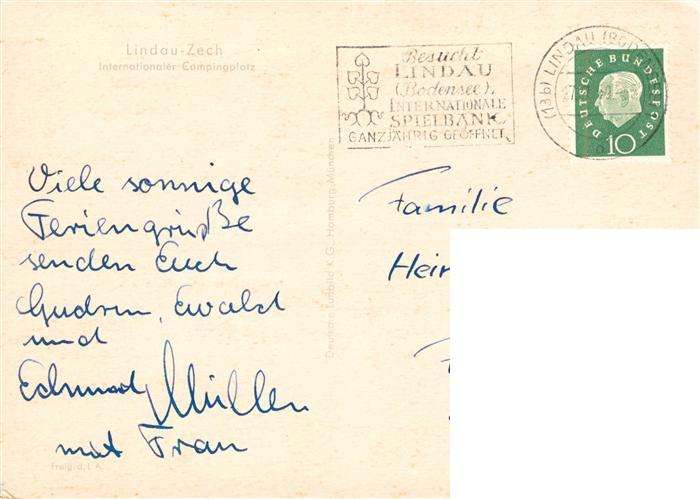 Lindau-Zech
Internationaler Campingplatz
Besucht
LINDAU
(Bodensee),
INTERNATIONALE
SPIELBANK
GANZJÄHRIG GEÖFFNET
(13b) LINDAU
DEUTSCHE BUNDESPOST
10
Viele sonnige
Feriengrüße
senden Euch
Gudrun, Ewald
und
Edmund Müller
mit Frau
Familie
Hein
Deutsche Luftbild K.G., Hamburg/München